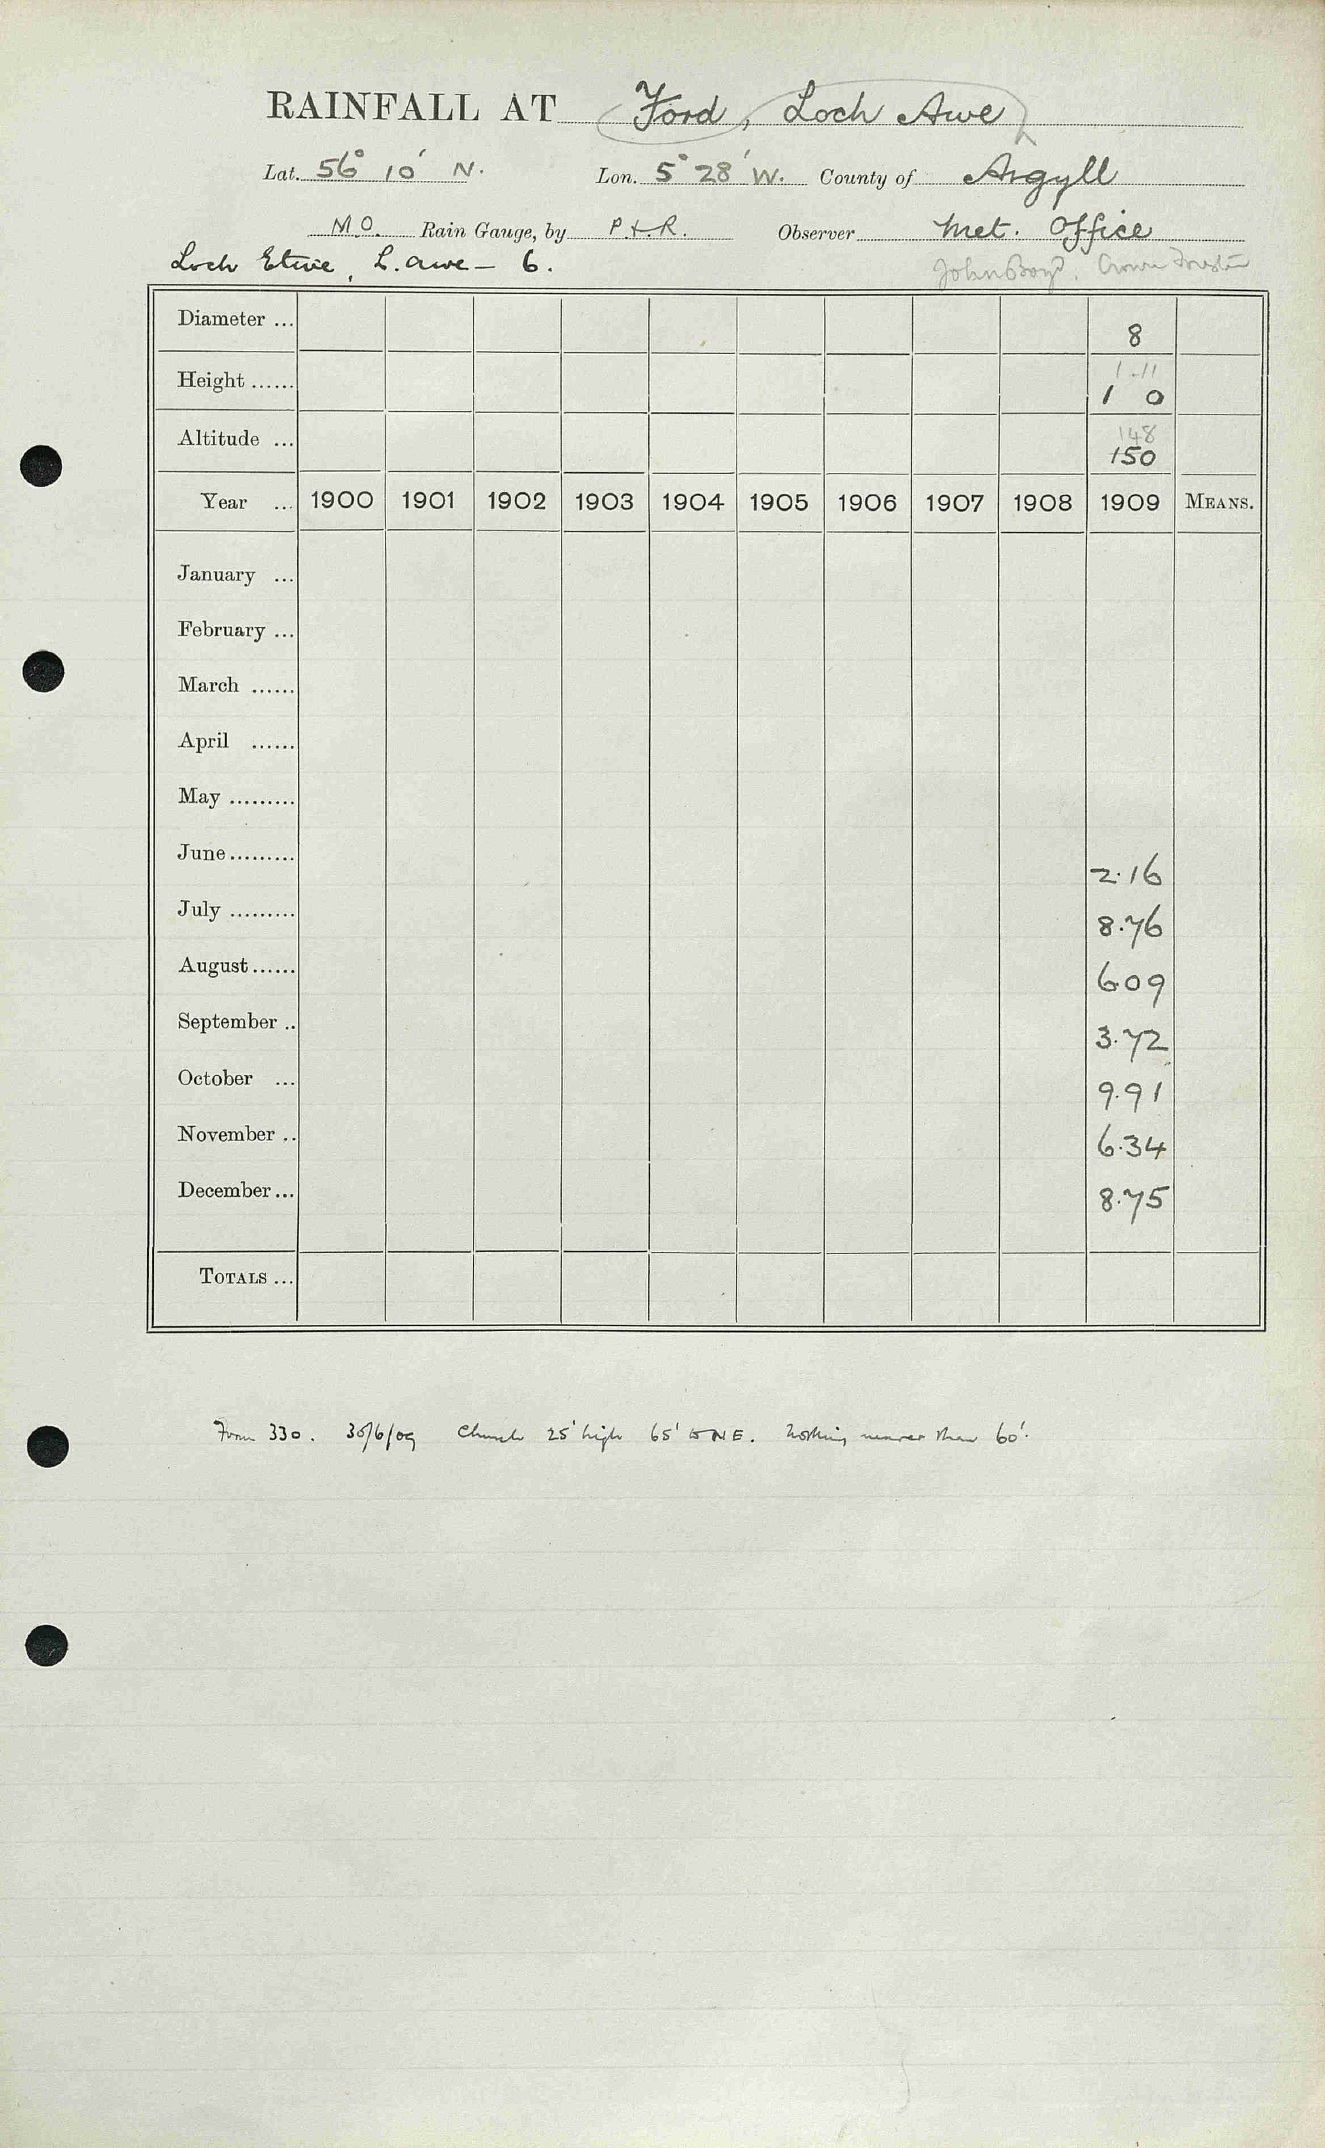 RAINFALL AT Ford, Loch Awe
Lat. 56° 10' N. Lon. 5° 28' W. County of Argyll
M.O. Rain Gauge, by P.&R. Observer Met. Office
Loch Etive, L. Awe — 6. John Boyd. Crown Forester
Diameter ... 8
Height ...... 1.11
1 0
Altitude ... 148
150
Year ... 1900 1901 1902 1903 1904 1905 1906 1907 1908 1909 MEANS.
January ...
February ...
March ......
April ......
May .........
June ......... 2.16
July ......... 8.76
August ...... 6.09
September .. 3.72
October ... 9.91
November .. 6.34
December ... 8.75
TOTALS ...
From 330. 30/6/09 Church 25' high 65' to NE. Nothing nearer than 60'.